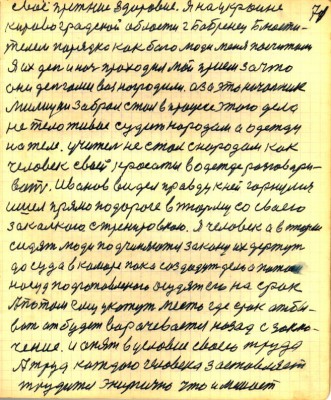 своё прежнее здоровие. Я на украине
71
кировоградской области г Бобренец Блюсти-
телем порядка как бога люди меня почитали
Я их день и ноч проходил мой прием за что
они деньгами вознаградили. а за это начальник
милиции забрал стал в процесе этого дела
не тело живые судит народам а одежду
на теле. учител не стал с народам как
человек своей красоты в одежде разговари-
вать. Иванов видел правду к ней
шел прямо по дороге в тюрму со своею
закалкою с тренировкою. Я человек а в тюрме
сидят люди подчиняются закону их держут
до суда в каморе пока создадут дело а потом
на суд подготовленого осудят его на срок
А потом ему укажут место где срок отби-
вать отбудет варачевается назад с заклю-
чение. и опять в условие своего труда
А труд каждого человека заставляет
трудится энергично что и мешает